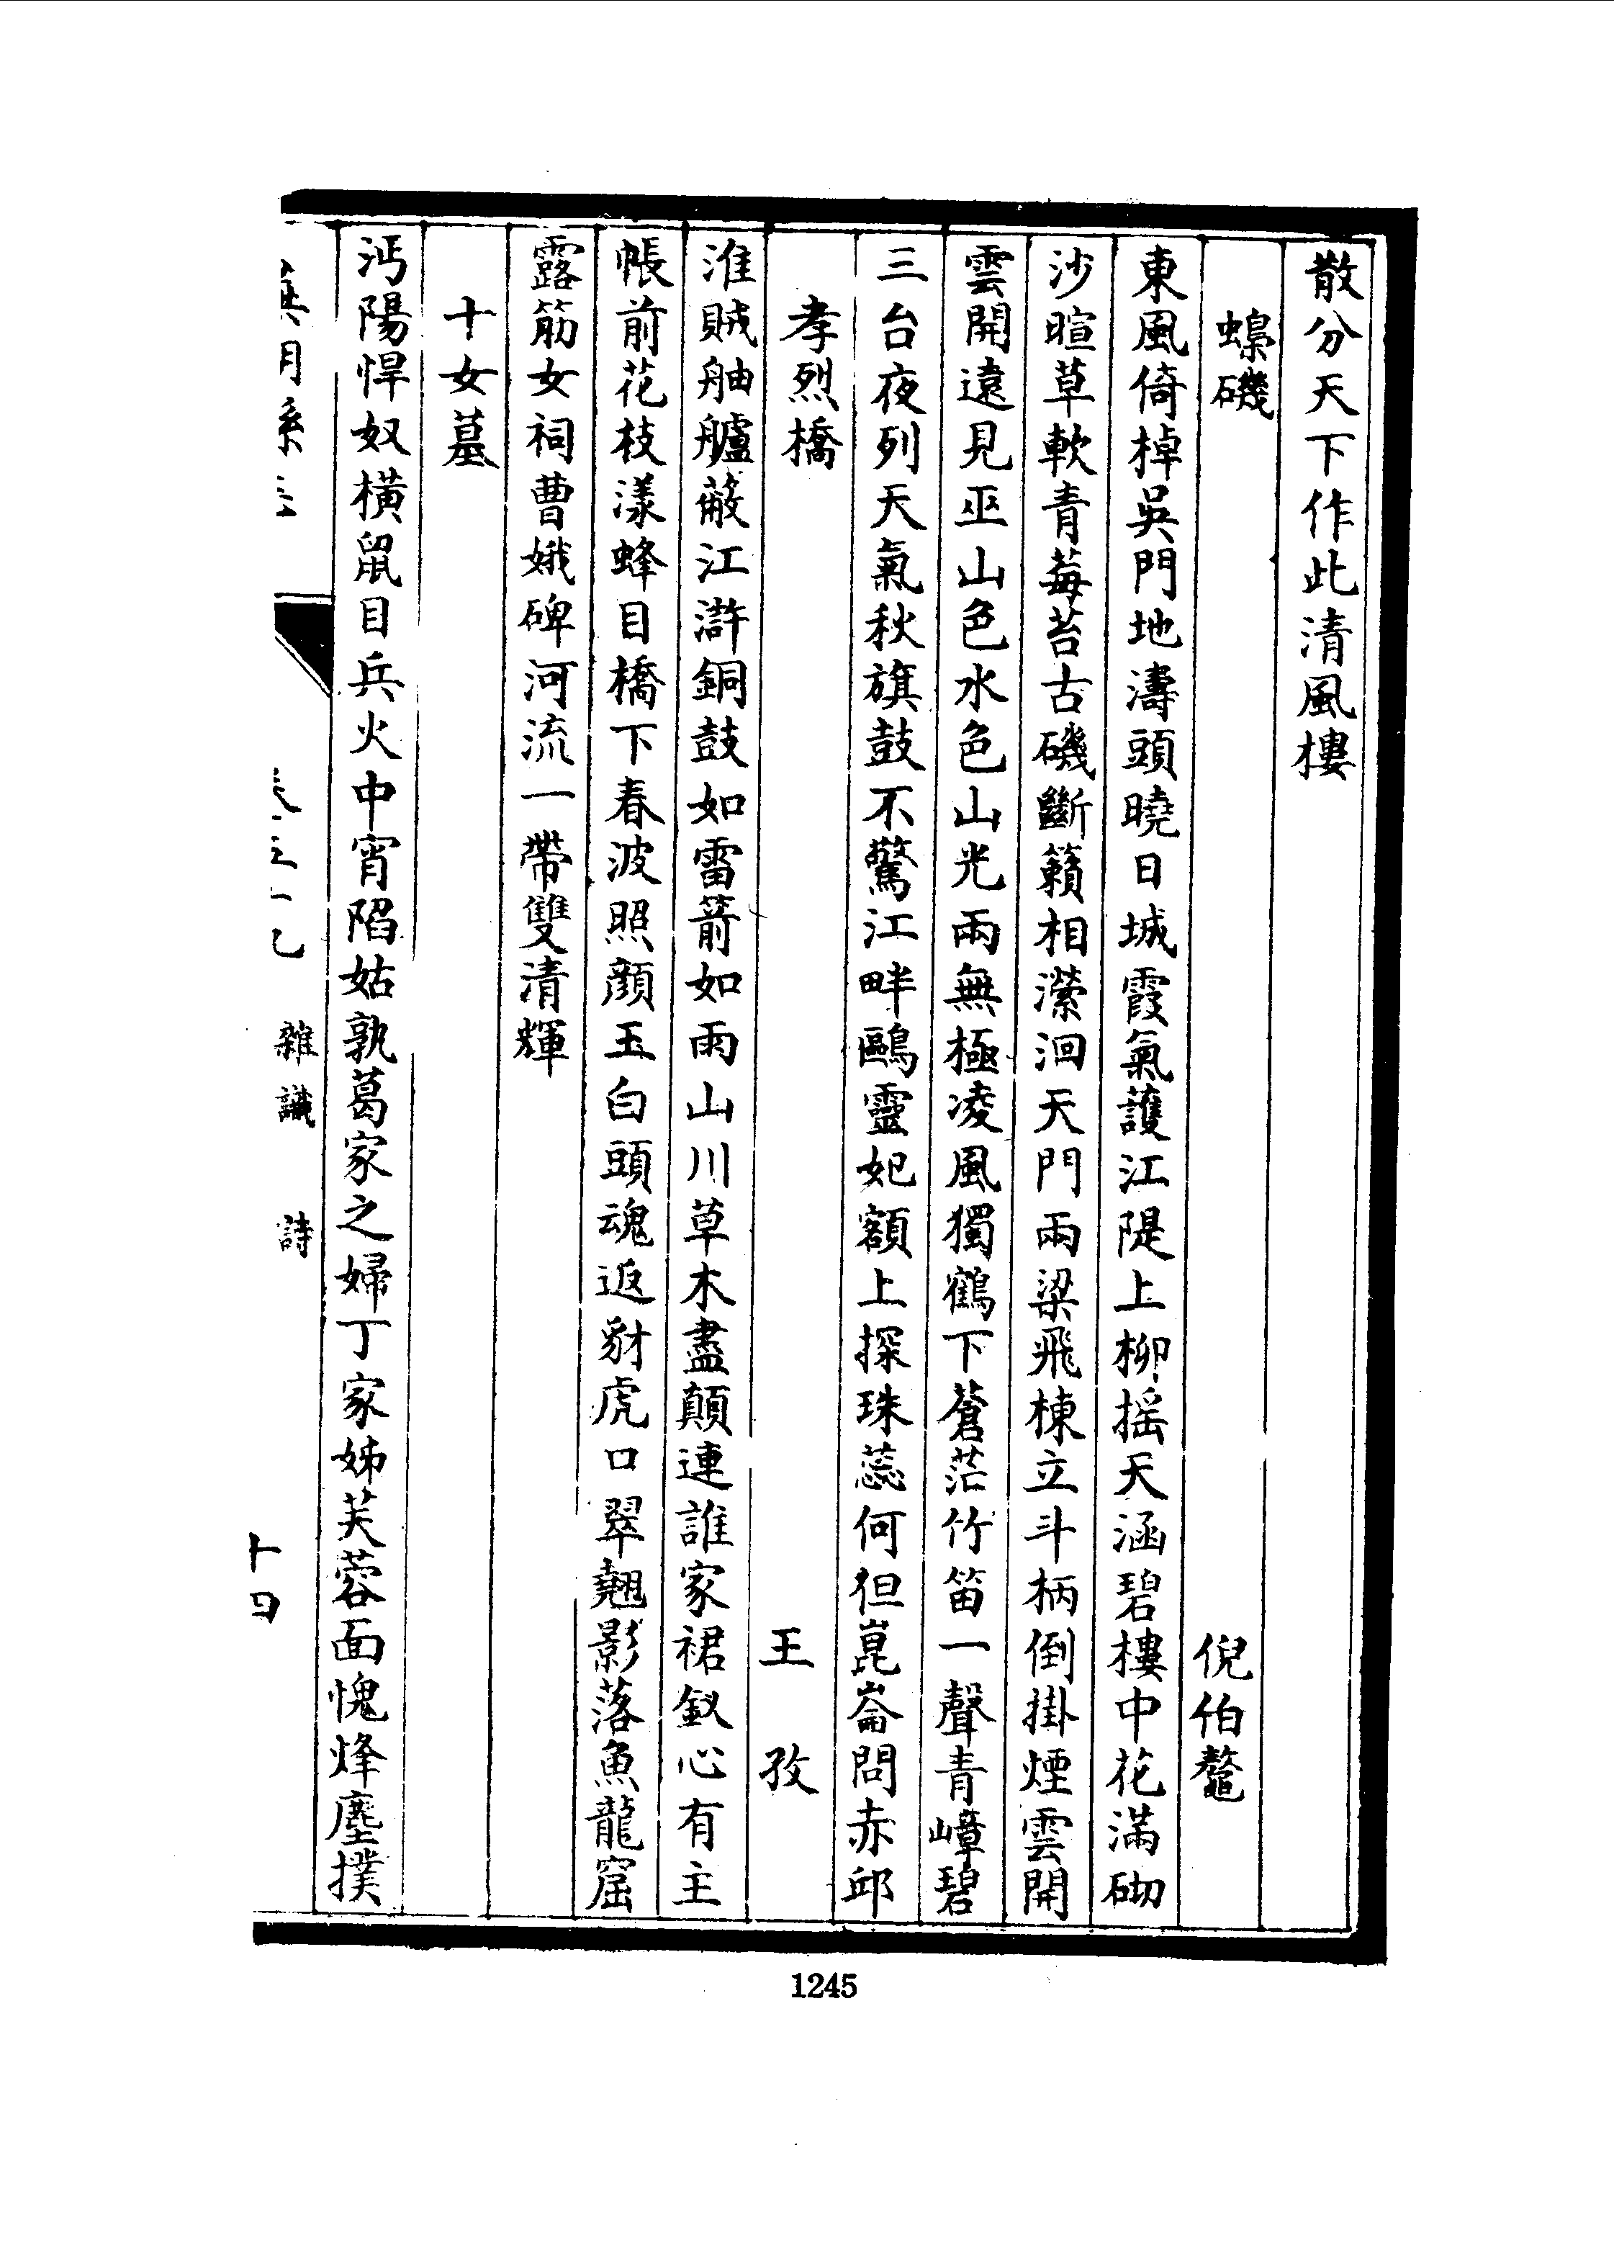 散分天下作此清風樓
蟂磯 倪伯鼇
東風倚棹吳門地濤頭曉日城霞氣護江隄上柳搖天涵碧樓中花滿砌
沙暄草軟青莓苔古磯斷籟相瀠洄天門兩梁飛棟立斗柄倒掛煙雲開
雲開遠見巫山色水色山光兩無極凌風獨鶴下蒼茫竹笛一聲青嶂碧
三台夜列天氣秋旗鼓不驚江畔鷗靈妃額上探珠蕊何但崑崙問赤邱
孝烈橋 王孜
淮賊舳艫蔽江滸銅鼓如雷箭如雨山川草木盡顛連誰家裙釵心有主
帳前花枝漾蜂目橋下春波照顏玉白頭魂返豺虎口翠翹影落魚龍窟
露筋女祠曹娥碑河流一帶雙清輝
十女墓
沔陽悍奴橫鼠目兵火中宵陷姑孰葛家之婦丁家姊芙蓉面愧烽塵撲
雜識 詩
十四
1245